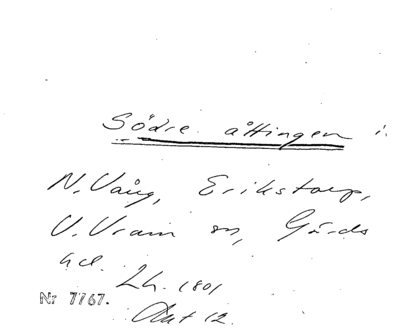 Södre åttingen i.
N. Vång, Erikstorp,
V. Vram sn, Gärds
hd. Lh. 1801
Nr 7767. Akt 12.